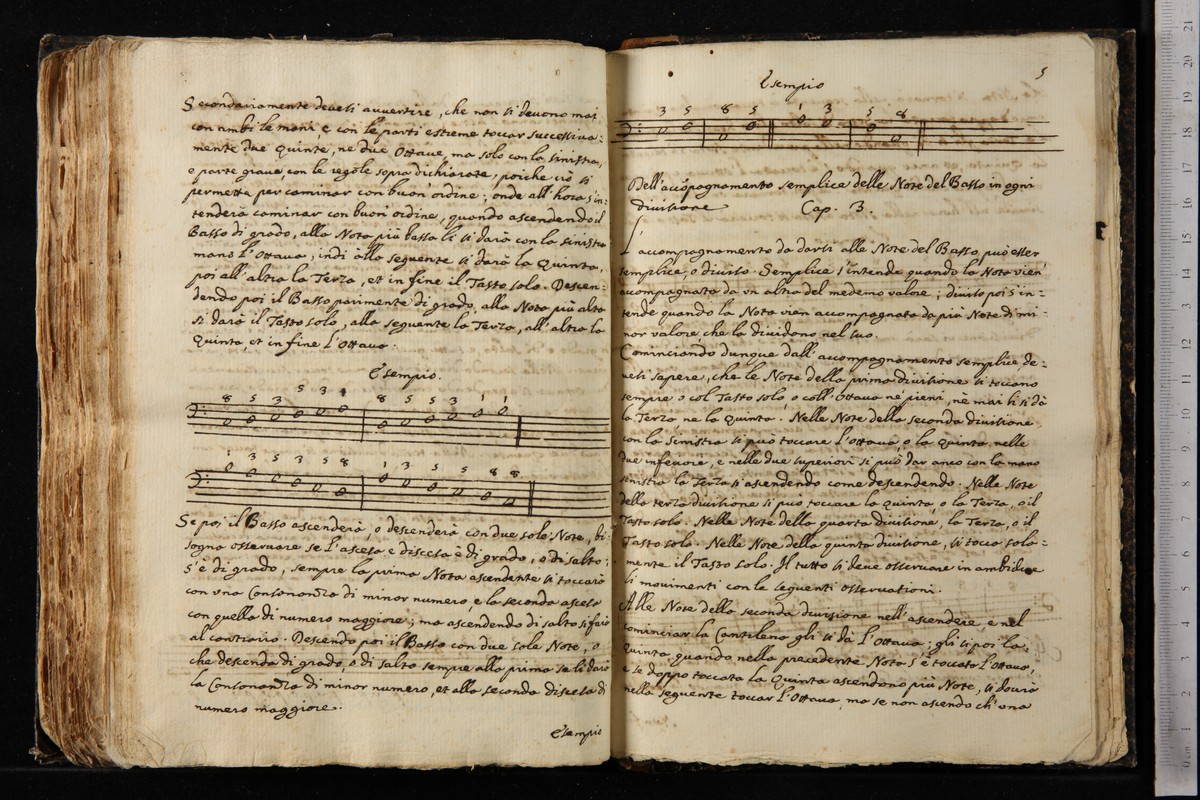 Secondariamente devesi avvertire, che non si devono mai
con ambi le mani, e con le parti estreme toccar successiva=
mente due Quinte, ne due Ottave, ma solo con la sinistra,
e parte grave, con le regole sopra dichiarate, poiche ciò si
permette per caminar con buon' ordine; onde all' hora s'in=
tenderà caminar con buon' ordine, quando ascendendo il
Basso di grado, alla Nota più bassa li si darà con la sinistra
mano l'Ottava, indi alla seguente si darà la Quinta,
poi all' altra la Terza, et in fine il Tasto solo. Descen=
dendo poi il Basso parimente di grado, alla Nota più alta
si darà il Tasto solo, alla seguente la Terza, all' altra la
Quinta, et in fine l'Ottava.
Esempio.
8 5 3 5 3 1 8 5 5 3 1 1
1 3 5 3 5 8 1 3 5 5 8 8
Se poi il Basso ascenderà, o descenderà con due sole Note, bi=
sogna osservare se l'ascesa e discesa è di grado, o di salto;
s'è di grado, sempre la prima Nota ascendente si toccarà
con una Consonanza di minor numero, e la seconda ascesa
con quella di numero maggiore; ma ascendendo di salto si farà
al contrario. Descendo poi il Basso con due sole Note, o
che descenda di grado, o di salto sempre alla prima se li darà
la Consonanza di minor numero, et alla seconda discesa di
numero maggiore.
Esempio
5
Esempio
3 5 8 5 1 3 5 8
Dell' accõpagnamento semplice delle Note del Basso in ogni
divisione Cap. 3.
L'accompagnamento da darsi alle Note del Basso, può esser
semplice, o diviso. Semplice s'intende quando la Nota vien'
accompagnata da un altra del medemo valore; diviso poi s'in=
tende quando la Nota vien accompagnata da più Note di mi=
nor valore che la dividono nel suo.
Cominciando dunque dall' accompagnamento semplice, de=
vesi sapere, che le Note della prima divisione si toccano
sempre o col Tasto solo, o coll' Ottava ne pieni, ne mai li si dà
la Terza, ne la Quinta. Nelle Note della seconda divisione
con la sinistra si può toccare l'Ottava o la Quinta nelle
due inferiori, e nelle due superiori si può dar anco con la mano
sinistra la Terza sì ascendendo come descendendo. Nelle Note
della terza divisione si può toccare la Quinta, o la Terza, o il
Tasto solo. Nelle Note della quarta divisione, la Terza, o il
Tasto solo. Nelle Note della quinta divisione, si tocca sola=
mente il Tasto solo. Il tutto si deve osservare in ambidue
li movimenti con le seguenti osservationi.
Alle Note della seconda divisione nell' ascendere, e nel
cominciar la Cantilena gli si dà l'Ottava; gli si poi la
Quinta quando nella precedente Nota s'è toccata l'Ottava,
e se doppo toccata la Quinta ascendono più Note, si dourà
nella seguente toccar l'Ottava, ma se non ascende ch' una